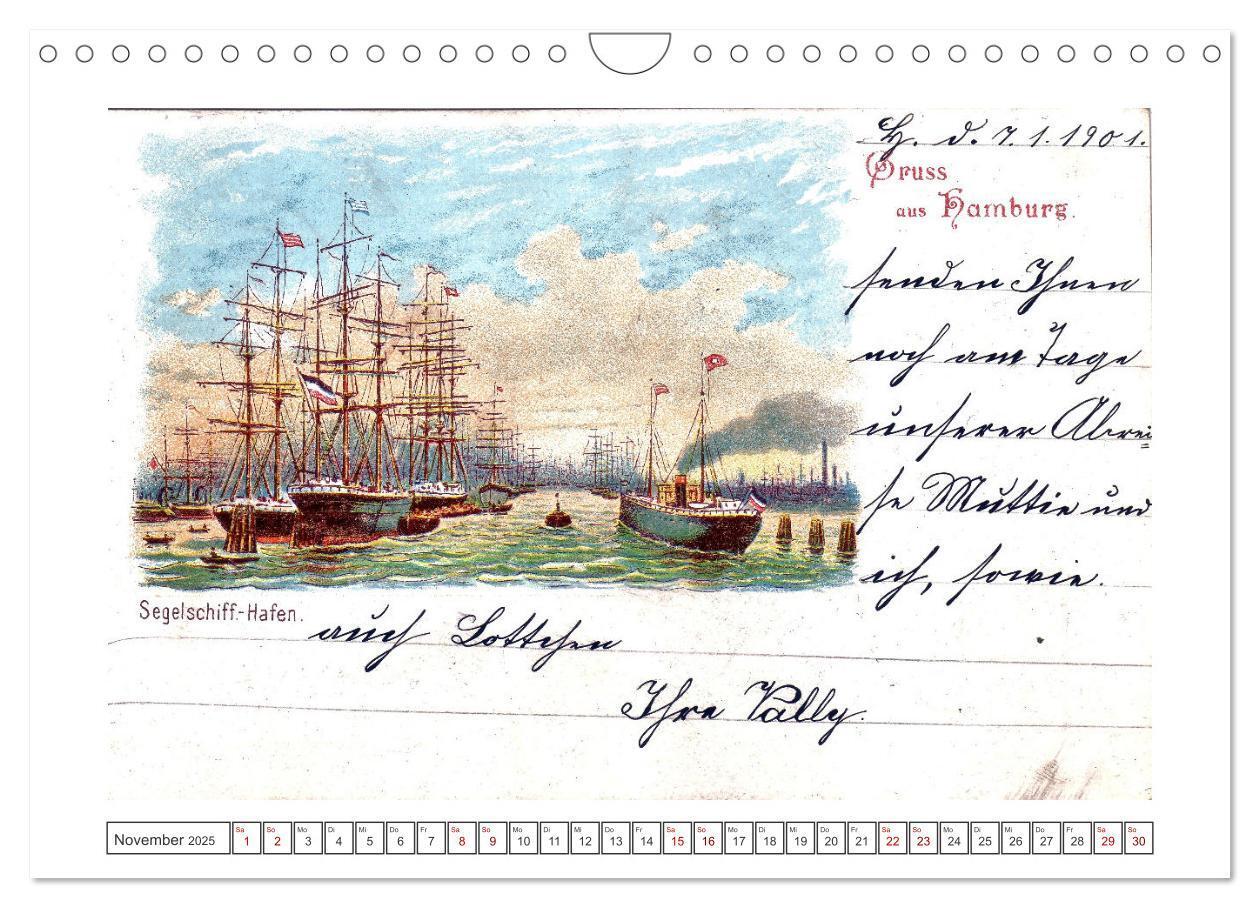 H. d. 7. 1. 1901.
Gruss
aus Hamburg.
senden Ihnen
noch am Tage
unserer Abrei
se Muttie und
ich, sowie.
Segelschiff-Hafen.
auch Lottchen
Ihre Vally.
November 2025
Sa So Mo Di Mi Do Fr Sa So Mo Di Mi Do Fr Sa So Mo Di Mi Do Fr Sa So Mo Di Mi Do Fr Sa So
1 2 3 4 5 6 7 8 9 10 11 12 13 14 15 16 17 18 19 20 21 22 23 24 25 26 27 28 29 30